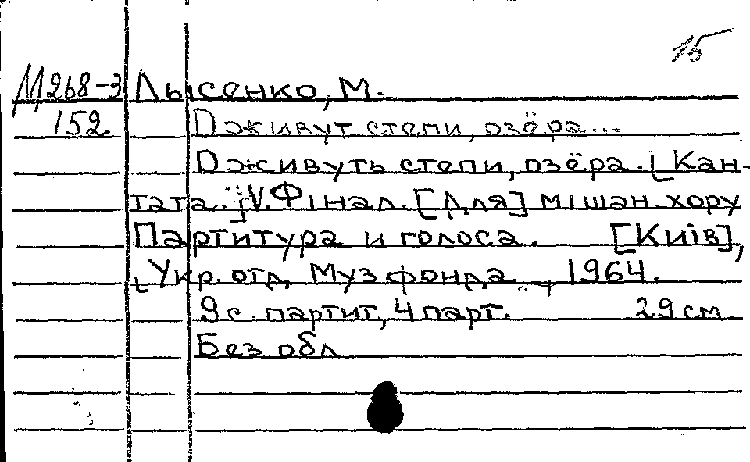 15
М268-3 Лысенко, М.
152. Оживут степи, озёра...
Оживуть степи, озёра. [Кан-
тата. IV. Фінал. [Для] мішан. хору
Партитура и голоса. [Київ],
[Укр. отд. Музфонда], 1964.
9 с. партит, 4 парт. 29 см
Без обл